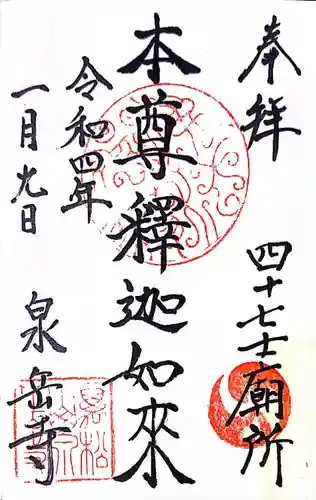 奉拝
四十七士廟所
本尊釋迦如來
令和四年
一月九日
泉岳寺